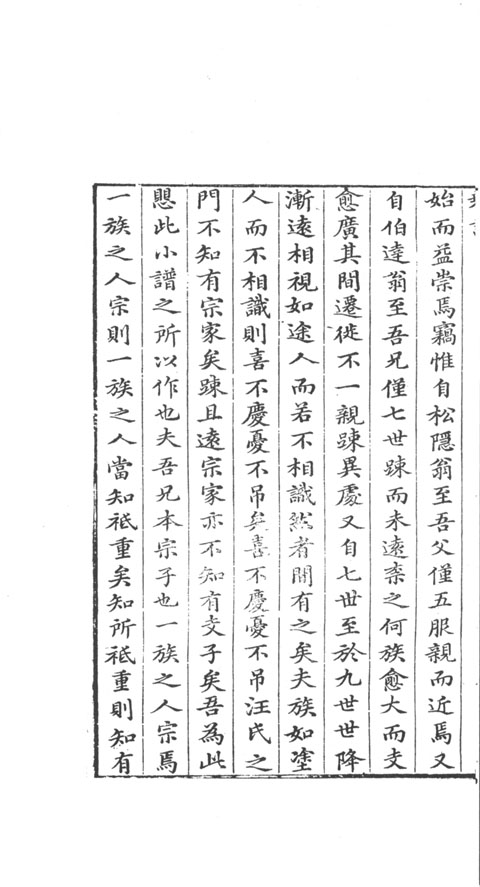 始而益崇焉竊惟自松隱翁至吾父僅五服親而近焉又
自伯達翁至吾兄僅七世踈而未遠柰之何族愈大而支
愈廣其間遷徙不一親踈異處又自七世至於九世世降
漸遠相視如途人而若不相識然者間有之矣夫族如塗
人而不相識則喜不慶憂不吊矣喜不慶憂不吊汪氏之
門不知有宗家矣踈且遠宗家亦不知有支子矣吾為此
懇此小譜之所以作也夫吾兄本宗子也一族之人宗焉
一族之人宗則一族之人當知祗重矣知所祗重則知有